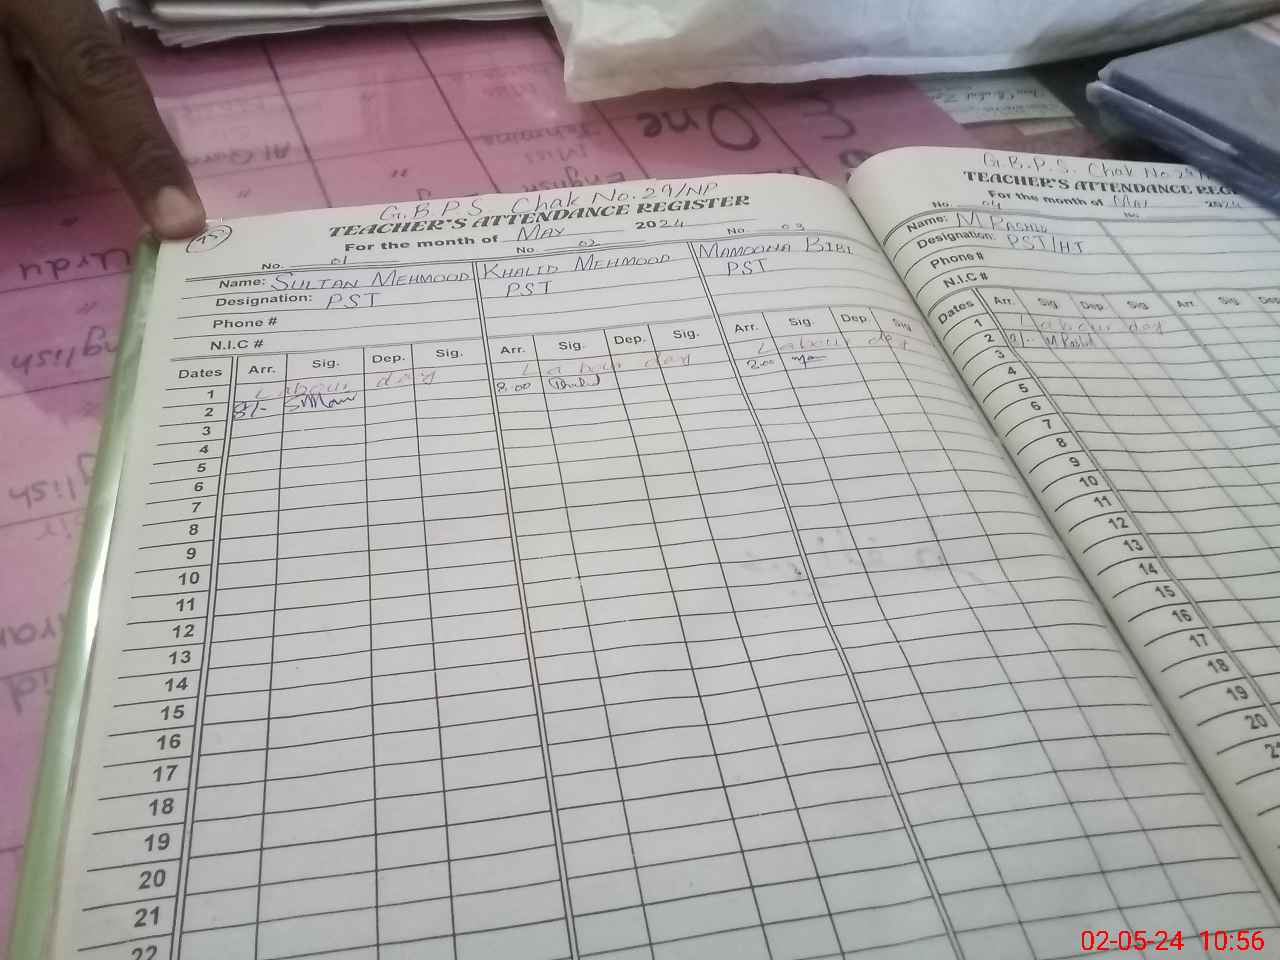 G.B.P.S Chak No.29/NP
TEACHER'S ATTENDANCE REGISTER
For the month of MAY 2024
No. 01 No. 02 No. 03
Name: SULTAN MEHMOOD KHALID MEHMOOD MAMOONA BIBI
Designation: PST PST PST
Phone #
N.I.C #
Dates Arr. Sig. Dep. Sig. Arr. Sig. Dep. Sig. Arr. Sig. Dep. Sig
1 Labour day Labour day Labour day
2 8/- 8:00
3
4
5
6
7
8
9
10
11
12
13
14
15
16
17
18
19
20
21
22
G.B.P.S. Chak No.29
TEACHER'S ATTENDANCE REG
For the month of MAY 2024
No. 04 No
Name: M RASHID
Designation: PST/HT
Phone #
N.I.C #
Dates Arr. Sig Dep. Sig Arr. Sig. Dep
1 Labour day
2
3
4
5
6
7
8
9
10
11
12
13
14
15
16
17
18
19
20
One
English
Miss
Urdu
02-05-24 10:56